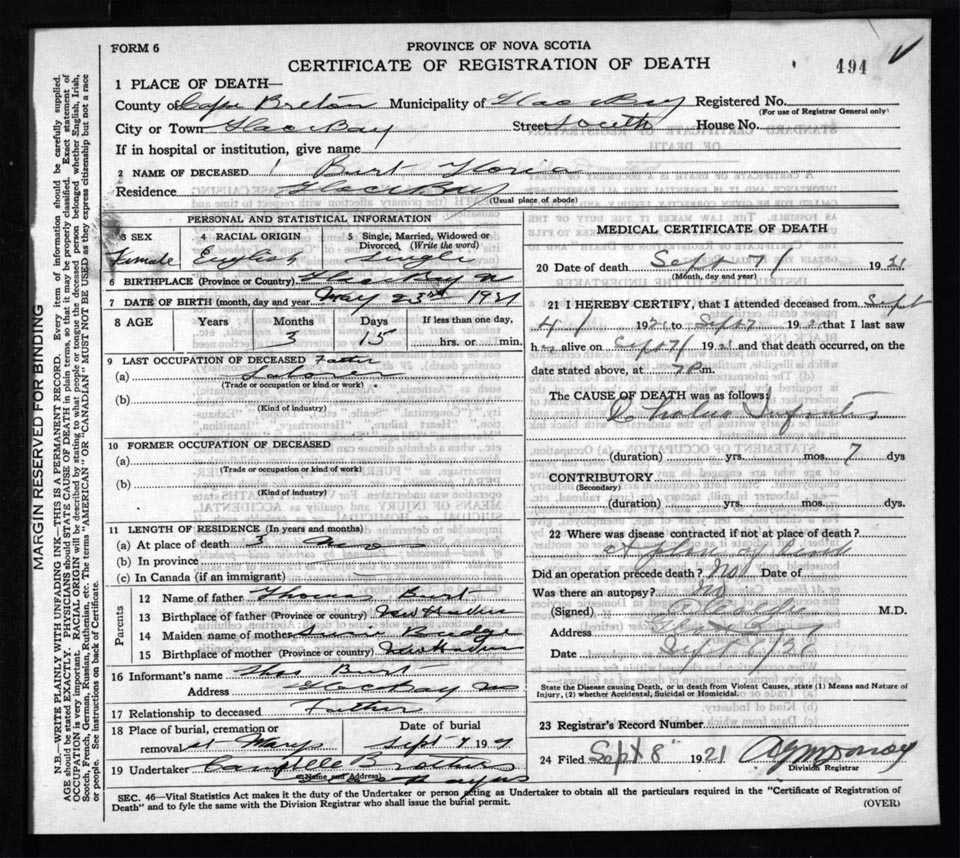 FORM 6
PROVINCE OF NOVA SCOTIA
CERTIFICATE OF REGISTRATION OF DEATH
494
1 PLACE OF DEATH—
County of Cape Breton Municipality of Glace Bay Registered No.
(For use of Registrar General only)
City or Town Glace Bay Street South House No.
If in hospital or institution, give name
2 NAME OF DECEASED Burt
Residence Glace Bay
(Usual place of abode)
PERSONAL AND STATISTICAL INFORMATION
3 SEX 4 RACIAL ORIGIN 5 Single, Married, Widowed or Divorced, (Write the word)
Female English Single
6 BIRTHPLACE (Province or Country) Glace Bay
7 DATE OF BIRTH (month, day and year) May 23rd 1921
8 AGE Years Months Days If less than one day,
3 15 hrs. or min.
9 LAST OCCUPATION OF DECEASED Father
(a) Laborer
(Trade or occupation or kind of work)
(b)
(Kind of industry)
10 FORMER OCCUPATION OF DECEASED
(a)
(Trade or occupation or kind of work)
(b)
(Kind of industry)
11 LENGTH OF RESIDENCE (In years and months)
(a) At place of death 3
(b) In province
(c) In Canada (if an immigrant)
Parents
12 Name of father Thomas Burt
13 Birthplace of father (Province or country)
14 Maiden name of mother Budge
15 Birthplace of mother (Province or country)
16 Informant's name Thos Burt
Address Glace Bay
17 Relationship to deceased Father
18 Place of burial, cremation or Date of burial
removal St Marys Sept 19
19 Undertaker Campbell Brothers
(Name and Address)
MEDICAL CERTIFICATE OF DEATH
20 Date of death Sept 7 1921
(Month, day and year)
21 I HEREBY CERTIFY, that I attended deceased from Sept
4 1921 to Sept 7 1921 that I last saw
h alive on Sept 7 1921 and that death occurred, on the
date stated above, at 7 P.m.
The CAUSE OF DEATH was as follows:
Cholera Infantis
(duration) yrs. mos. 7 dys
CONTRIBUTORY
(Secondary)
(duration) yrs. mos. dys.
22 Where was disease contracted if not at place of death?
Did an operation precede death? No Date of
Was there an autopsy? No
(Signed) M.D.
Address
Date Sept
State the Disease causing Death, or in death from Violent Causes, state (1) Means and Nature of
Injury, (2) whether Accidental, Suicidal or Homicidal.
23 Registrar's Record Number
24 Filed Sept 8 1921
Division Registrar
SEC. 46—Vital Statistics Act makes it the duty of the Undertaker or person acting as Undertaker to obtain all the particulars required in the "Certificate of Registration of
Death" and to fyle the same with the Division Registrar who shall issue the burial permit.
(OVER)
MARGIN RESERVED FOR BINDING
N.B.—WRITE PLAINLY WITH UNFADING INK—THIS IS A PERMANENT RECORD. Every item of information should be carefully supplied.
AGE should be stated EXACTLY. PHYSICIANS should STATE CAUSE OF DEATH in plain terms, so that it may be properly classified. Exact statement of
OCCUPATION is very important. RACIAL ORIGIN will be described by stating to what people or tongue the deceased person belonged whether English, Irish,
Scotch, French, German, Russian, Ruthenian, etc. The terms "AMERICAN" OR "CANADIAN" MUST NOT BE USED as they express citizenship but not a race
or people. See instructions on back of Certificate.